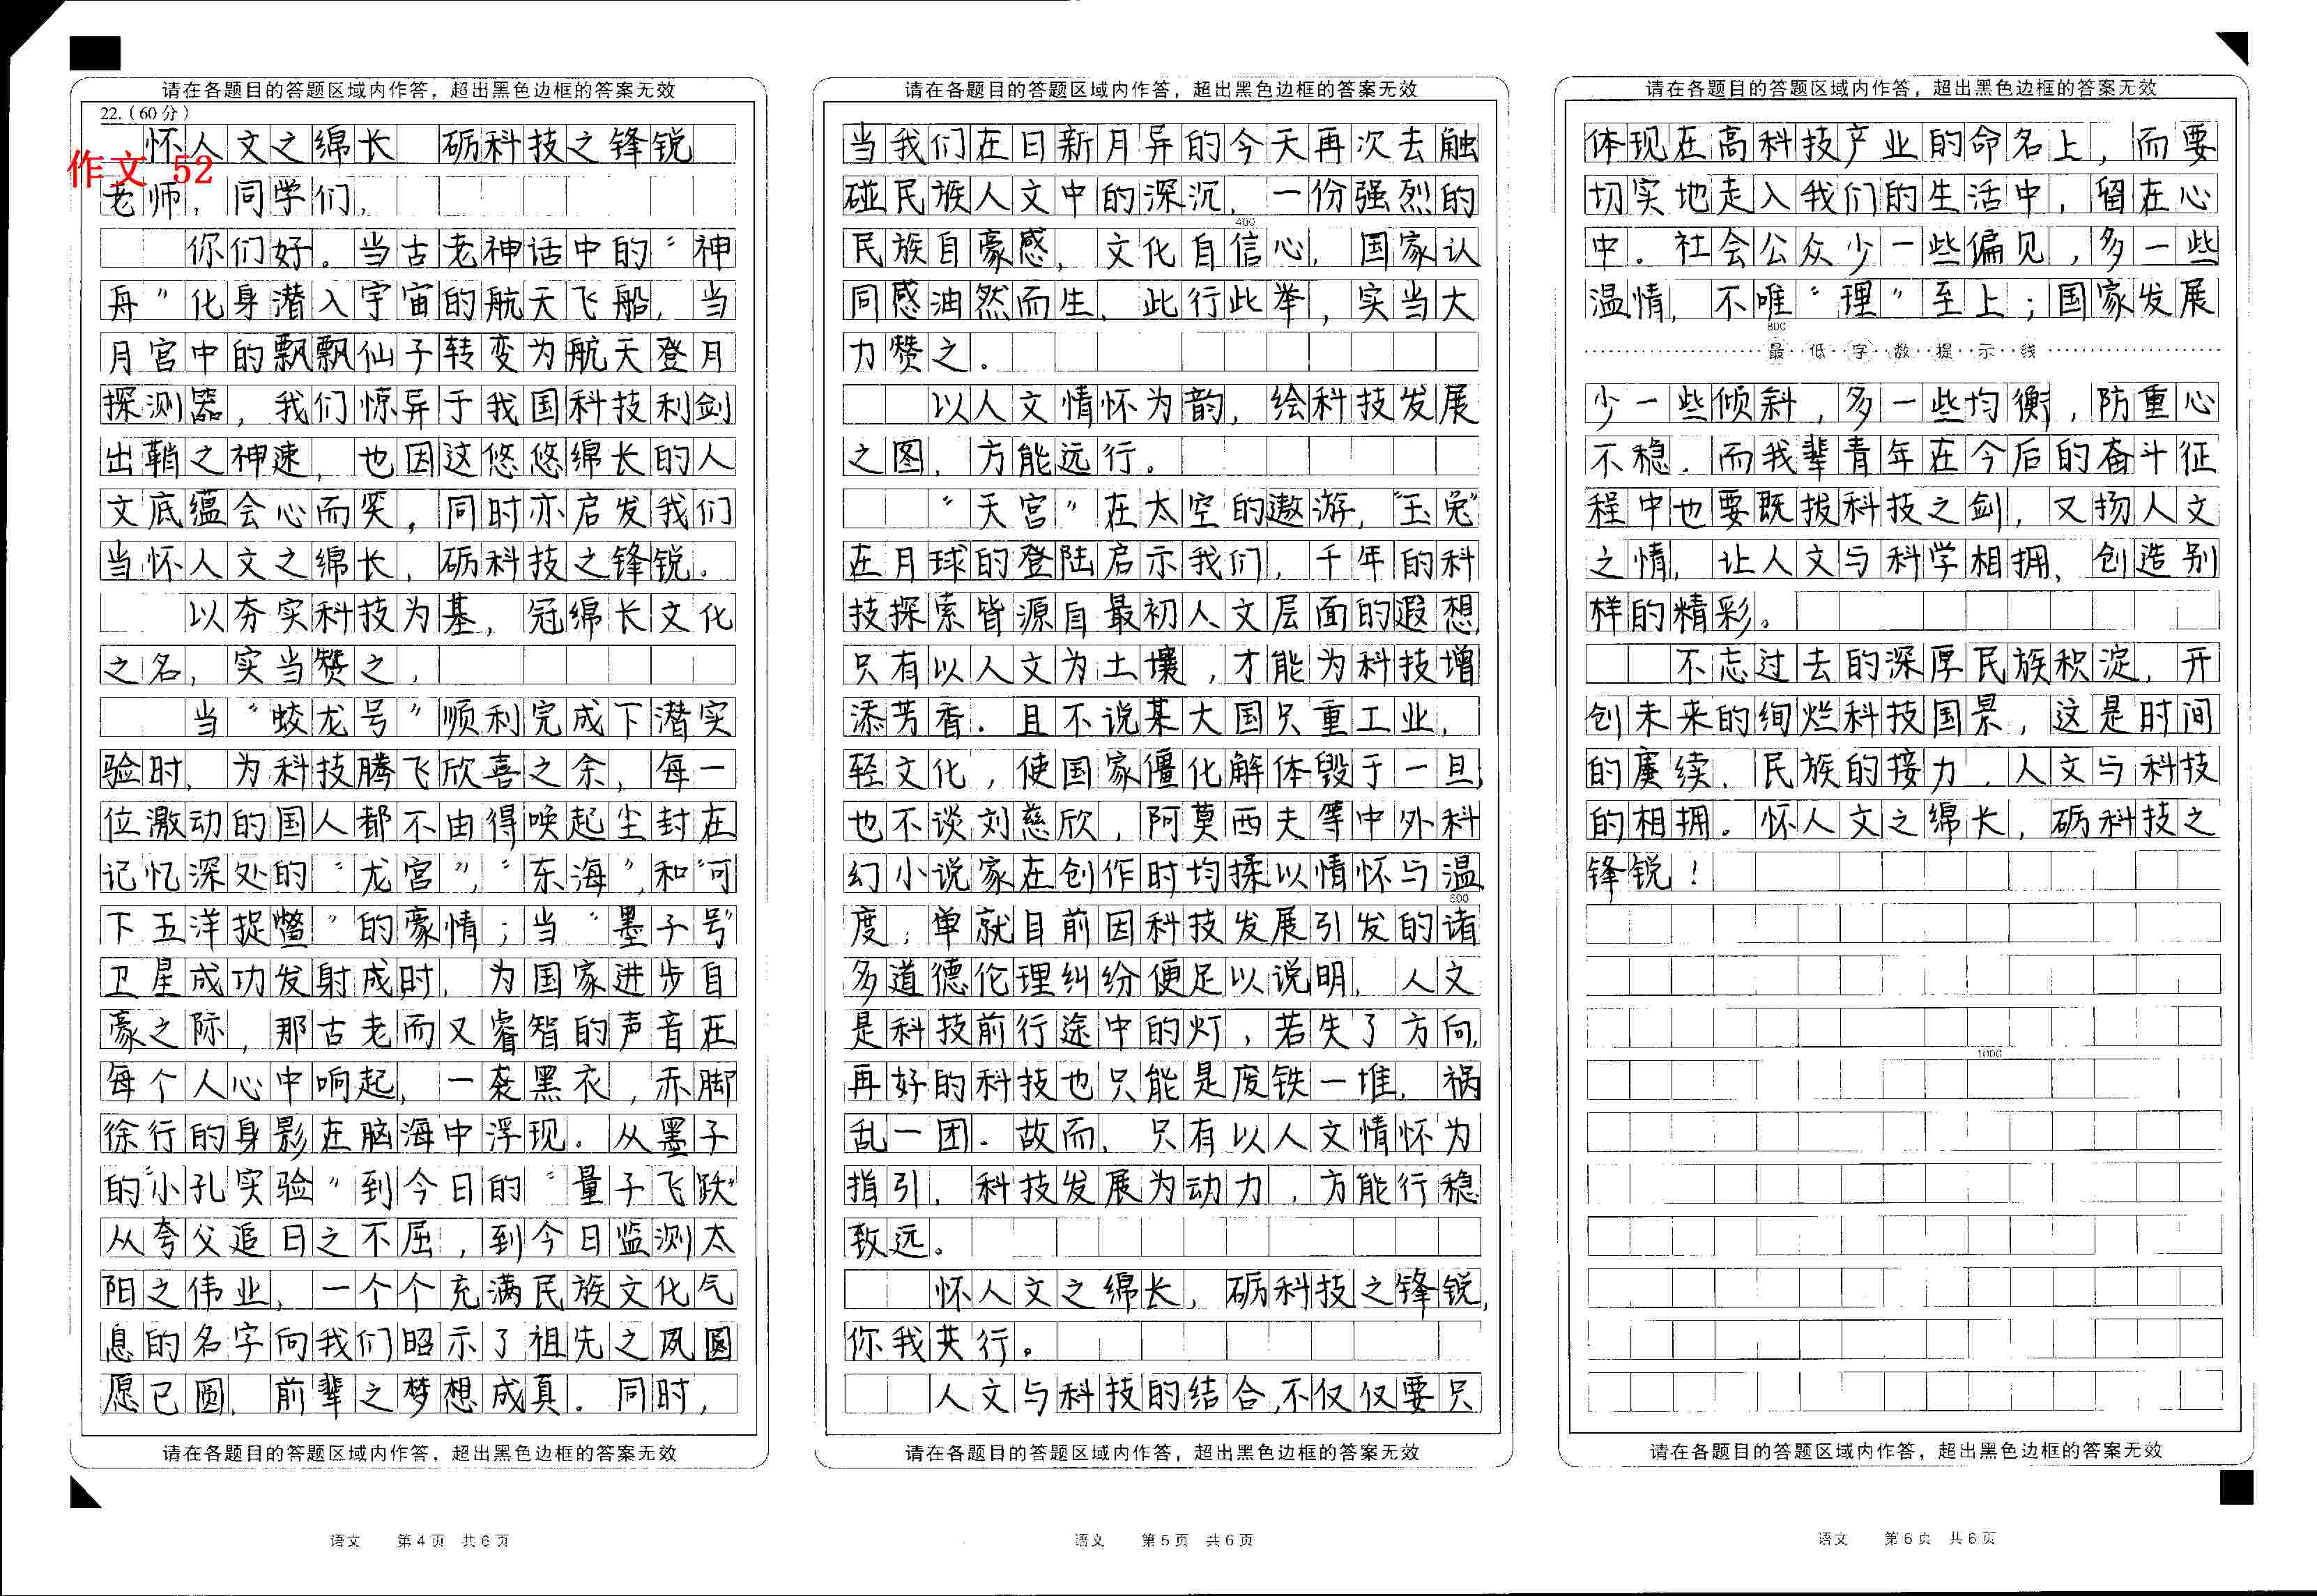 请在各题目的答题区域内作答，超出黑色边框的答案无效
22.（60分）
怀人文之绵长 砺科技之锋锐
作文 52
老师，同学们，
你们好。当古老神话中的“神
舟”化身潜入宇宙的航天飞船，当
月宫中的飘飘仙子转变为航天登月
探测器，我们惊异于我国科技利剑
出鞘之神速，也因这悠悠绵长的人
文底蕴会心而笑，同时亦启发我们
当怀人文之绵长，砺科技之锋锐。
以夯实科技为基，冠绵长文化
之名，实当赞之，
当“蛟龙号”顺利完成下潜实
验时，为科技腾飞欣喜之余，每一
位激动的国人都不由得唤起尘封在
记忆深处的“龙宫”，“东海”，和“可
下五洋捉鳖”的豪情；当“墨子号”
卫星成功发射成时，为国家进步自
豪之际，那古老而又睿智的声音在
每个人心中响起，一袭黑衣，赤脚
徐行的身影在脑海中浮现。从墨子
的“小孔实验”到今日的“量子飞跃”
从夸父追日之不屈，到今日监测太
阳之伟业，一个个充满民族文化气
息的名字向我们昭示了祖先之夙圆
愿已圆，前辈之梦想成真。同时，
请在各题目的答题区域内作答，超出黑色边框的答案无效
语文 第4页 共6页
请在各题目的答题区域内作答，超出黑色边框的答案无效
当我们在日新月异的今天再次去触
碰民族人文中的深沉，一份强烈的
400
民族自豪感，文化自信心，国家认
同感油然而生，此行此举，实当大
力赞之。
以人文情怀为韵，绘科技发展
之图，方能远行。
“天宫”在太空的遨游，“玉兔”
在月球的登陆启示我们，千年的科
技探索皆源自最初人文层面的遐想，
只有以人文为土壤，才能为科技增
添芳香。且不说某大国只重工业，
轻文化，使国家僵化解体毁于一旦，
也不谈刘慈欣，阿莫西夫等中外科
幻小说家在创作时均揉以情怀与温
600
度；单就目前因科技发展引发的诸
多道德伦理纠纷便足以说明，人文
是科技前行途中的灯，若失了方向，
再好的科技也只能是废铁一堆，祸
乱一团。故而，只有以人文情怀为
指引，科技发展为动力，方能行稳
致远。
怀人文之绵长，砺科技之锋锐，
你我共行。
人文与科技的结合，不仅仅要只
请在各题目的答题区域内作答，超出黑色边框的答案无效
语文 第5页 共6页
请在各题目的答题区域内作答，超出黑色边框的答案无效
体现在高科技产业的命名上，而要
切实地走入我们的生活中，留在心
中。社会公众少一些偏见，多一些
温情，不唯“理”至上；国家发展
800
最低字数提示线
少一些倾斜，多一些均衡，防重心
不稳。而我辈青年在今后的奋斗征
程中也要既拔科技之剑，又扬人文
之情，让人文与科学相拥，创造别
样的精彩。
不忘过去的深厚民族积淀，开
创未来的绚烂科技国景，这是时间
的赓续，民族的接力，人文与科技
的相拥。怀人文之绵长，砺科技之
锋锐！
1000
请在各题目的答题区域内作答，超出黑色边框的答案无效
语文 第6页 共6页